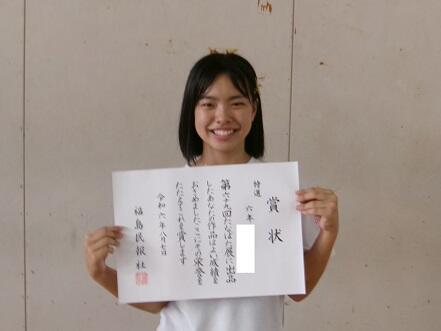 賞状
特選
六年
第六十九回たなばた展に出品
したあなたの作品はよい成績を
おさめましたここにその栄誉を
たたえてこれを賞します
令和六年八月七日
福島民報社